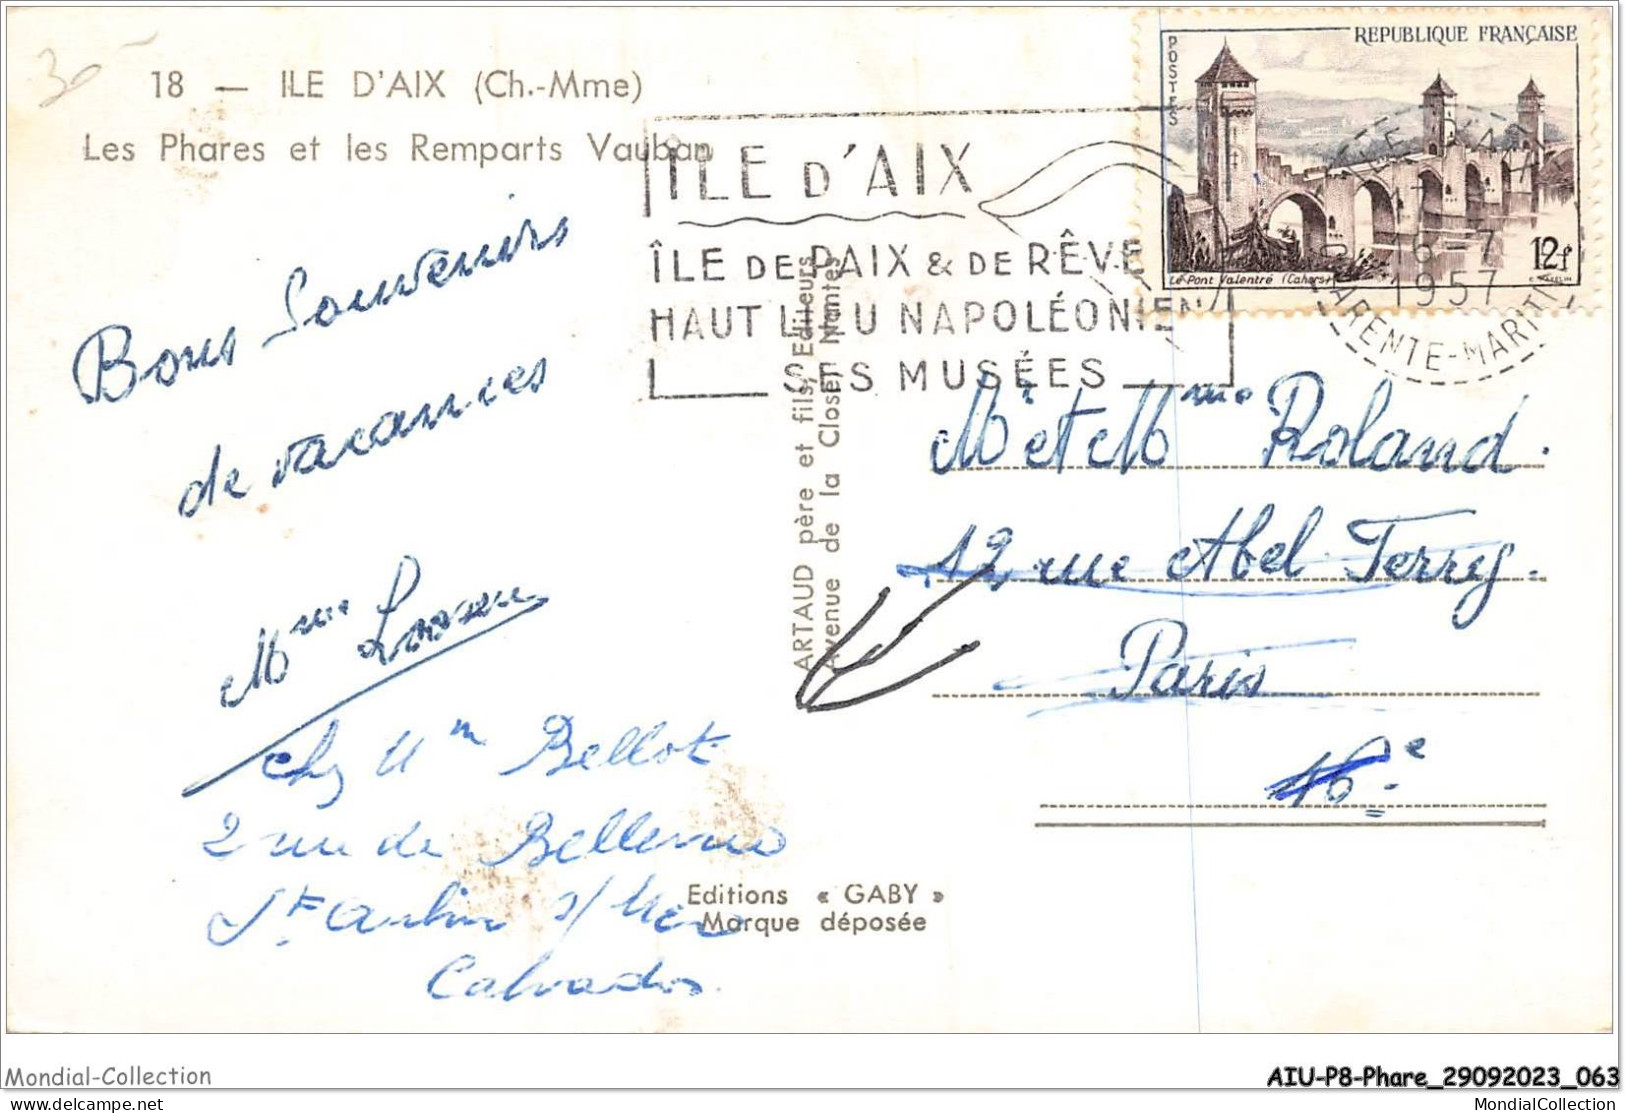 30
18 — ILE D'AIX (Ch.-Mme)
Les Phares et les Remparts Vauban
REPUBLIQUE FRANÇAISE
POSTES
Le Pont Valentré (Cahors)
12f
ILE D'AIX
16-7
1957
CHARENTE-MARITIME
ÎLE D'AIX
ÎLE DE PAIX & DE RÊVE
HAUT LIEU NAPOLÉONIEN
SES MUSÉES
Bons Souvenirs
de vacances
Mme
chez Mm Bellot
2 rue de Bellevue
St Aubin s/Mer
Calvados.
ARTAUD père et fils, Editeurs
Avenue de la Close, Nantes
Mr et Mme Roland.
12, rue Abel Ferry.
Paris
16e
Editions « GABY »
Marque déposée
Mondial-Collection
AIU-P8-Phare_29092023_063
delcampe.net
MondialCollection